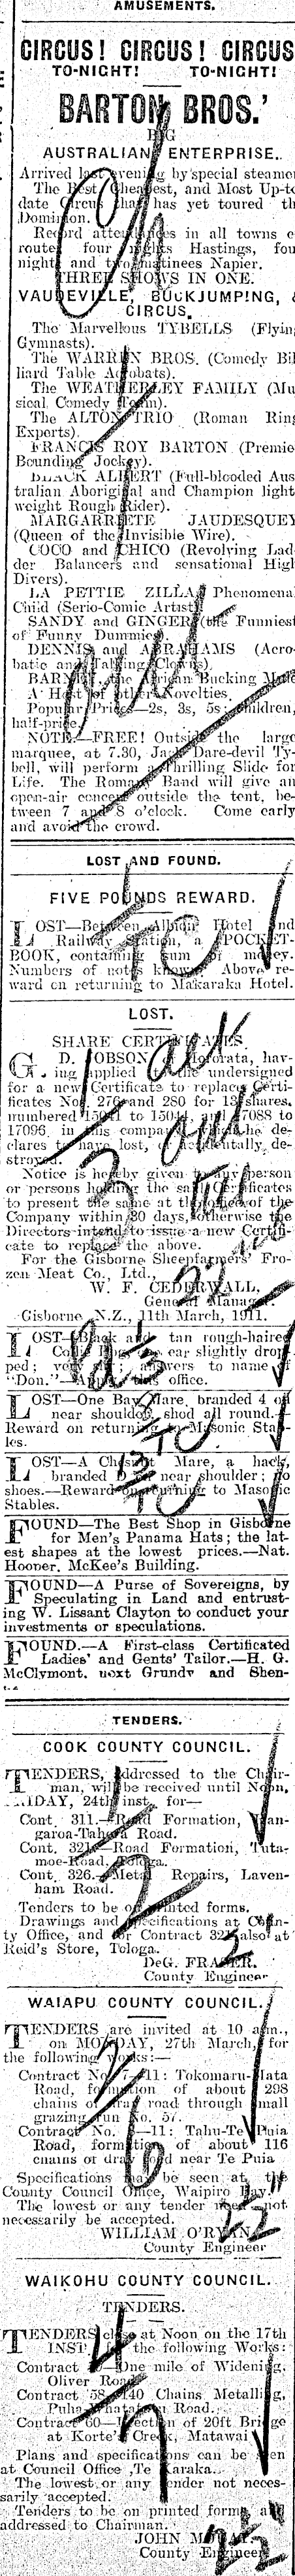 AMUSEMENTS.
CIRCUS! CIRCUS! CIRCUS
TO-NIGHT! TO-NIGHT!
BARTON BROS.'
BIG
AUSTRALIAN ENTERPRISE.
Arrived last evening by special steamer
The Best, Cheapest, and Most Up-to
date Circus that has yet toured th
Dominion.
Record attendances in all towns e
route four nights Hastings, fou
nights and two matinees Napier.
THREE SHOWS IN ONE.
VAUDEVILLE, BUCKJUMPING, &
CIRCUS.
The Marvellous TYBELLS (Flying
Gymnasts).
The WARREN BROS. (Comedy Bil
liard Table Acrobats).
The WEATHERLEY FAMILY (Mu
sical Comedy Team).
The ALTON TRIO (Roman Ring
Experts).
FRANCIS ROY BARTON (Premie
Bounding Jockey).
BLACK ALBERT (Full-blooded Aus
tralian Aboriginal and Champion light
weight Rough Rider).
MARGARREETE JAUDESQUEY
(Queen of the Invisible Wire).
COCO and CHICO (Revolving Lad-
der Balancers and sensational High
Divers).
LA PETTIE ZILLA, Phenomena
Child (Serio-Comic Artist).
SANDY and GINGER (the Funniest
of Funny Dummies).
DENNIS and ABRAHAMS (Acro-
batic and Talking Clowns).
the Bucking Mule
A Host of other Novelties.
Popular Prices—2s, 3s, 5s; children,
half-price.
NOTE.—FREE! Outside the large
marquee, at 7.30, Jack Dare-devil Ty-
bell, will perform Thrilling Slide for
Life. The Roman Band will give an
open-air concert outside the tent, be-
tween 7 and 8 o'clock. Come early
and avoid the crowd.
LOST AND FOUND.
FIVE POUNDS REWARD.
LOST—Between Albion Hotel and
Railway Station, a POCKET-
BOOK, containing sum of money.
Numbers of notes known. Above re-
ward on returning to Makaraka Hotel.
LOST.
SHARE CERTIFICATES.
G. D. DOBSON, hav-
ing applied undersigned
for a new Certificate to replace Certi-
ficates Nos. 276 and 280 for shares,
numbered to and 17088 to
17096 in this company, which he de-
clares to have lost, accidentally de-
stroyed.
Notice is hereby given to person
or persons holding the said Certificates
to present the same at the office of the
Company within 30 days, otherwise the
Directors intend to issue a new Certifi-
cate to replace the above.
For the Gisborne Sheepfarmers' Fro-
zen Meat Co., Ltd.,
W. F. CEDERWALL,
General Manager.
Gisborne, N.Z., 11th March, 1911.
LOST—Black and tan rough-haired
ear slightly drop-
ped; answers to name of
"Don."— office.
LOST—One Bay Mare, branded 4 on
near shoulder, shod all round.—
Reward on returning to Masonic Stab-
les.
LOST—A Mare, a hack,
branded near shoulder; no
shoes.—Reward on returning to Masonic
Stables.
FOUND—The Best Shop in Gisborne
for Men's Panama Hats; the lat-
est shapes at the lowest prices.—Nat.
Hooper, McKee's Building.
FOUND—A Purse of Sovereigns, by
Speculating in Land and entrust-
ing W. Lissant Clayton to conduct your
investments or speculations.
FOUND.—A First-class Certificated
Ladies' and Gents' Tailor.—H. G.
McClymont, next Grundy and Shen-
TENDERS.
COOK COUNTY COUNCIL.
TENDERS, addressed to the Chair-
man, will be received until Noon,
FRIDAY, 24th inst, for—
Cont. 311.—Road Formation, Wan-
garoa-Tahora Road.
Cont. 321—Road Formation, Tuta-
moe-Road, Tologa.
Cont. 326.—Metal Repairs, Laven-
ham Road.
Tenders to be on printed forms.
Drawings and specifications at Coun-
ty Office, and for Contract 321 also at
Reid's Store, Tologa.
DeG. FRASER,
County Engineer
WAIAPU COUNTY COUNCIL.
TENDERS are invited at 10 a.m.,
on MONDAY, 27th March, for
the following works:—
Contract No. 11: Tokomaru-Mata
Road, formation of about 298
chains of road through small
grazing run No. 57.
Contract No. —11: Tahu-Te Puia
Road, formation of about 116
chains of dray road near Te Puia
Specifications may be seen at the
County Council Office, Waipiro Bay.
The lowest or any tender not
necessarily be accepted.
WILLIAM O'RYAN,
County Engineer
WAIKOHU COUNTY COUNCIL.
TENDERS.
TENDERS close at Noon on the 17th
INST. the following Works:
Contract —One mile of Widening,
Oliver Road.
Contract 58—140 Chains Metalling,
Puha Road.
Contract 60—Erection of 20ft Bridge
at Korte's Creek, Matawai
Plans and specifications can be seen
at Council Office, Te Karaka.
The lowest or any tender not neces-
sarily accepted.
Tenders to be on printed forms and
addressed to Chairman.
JOHN
County Engineer